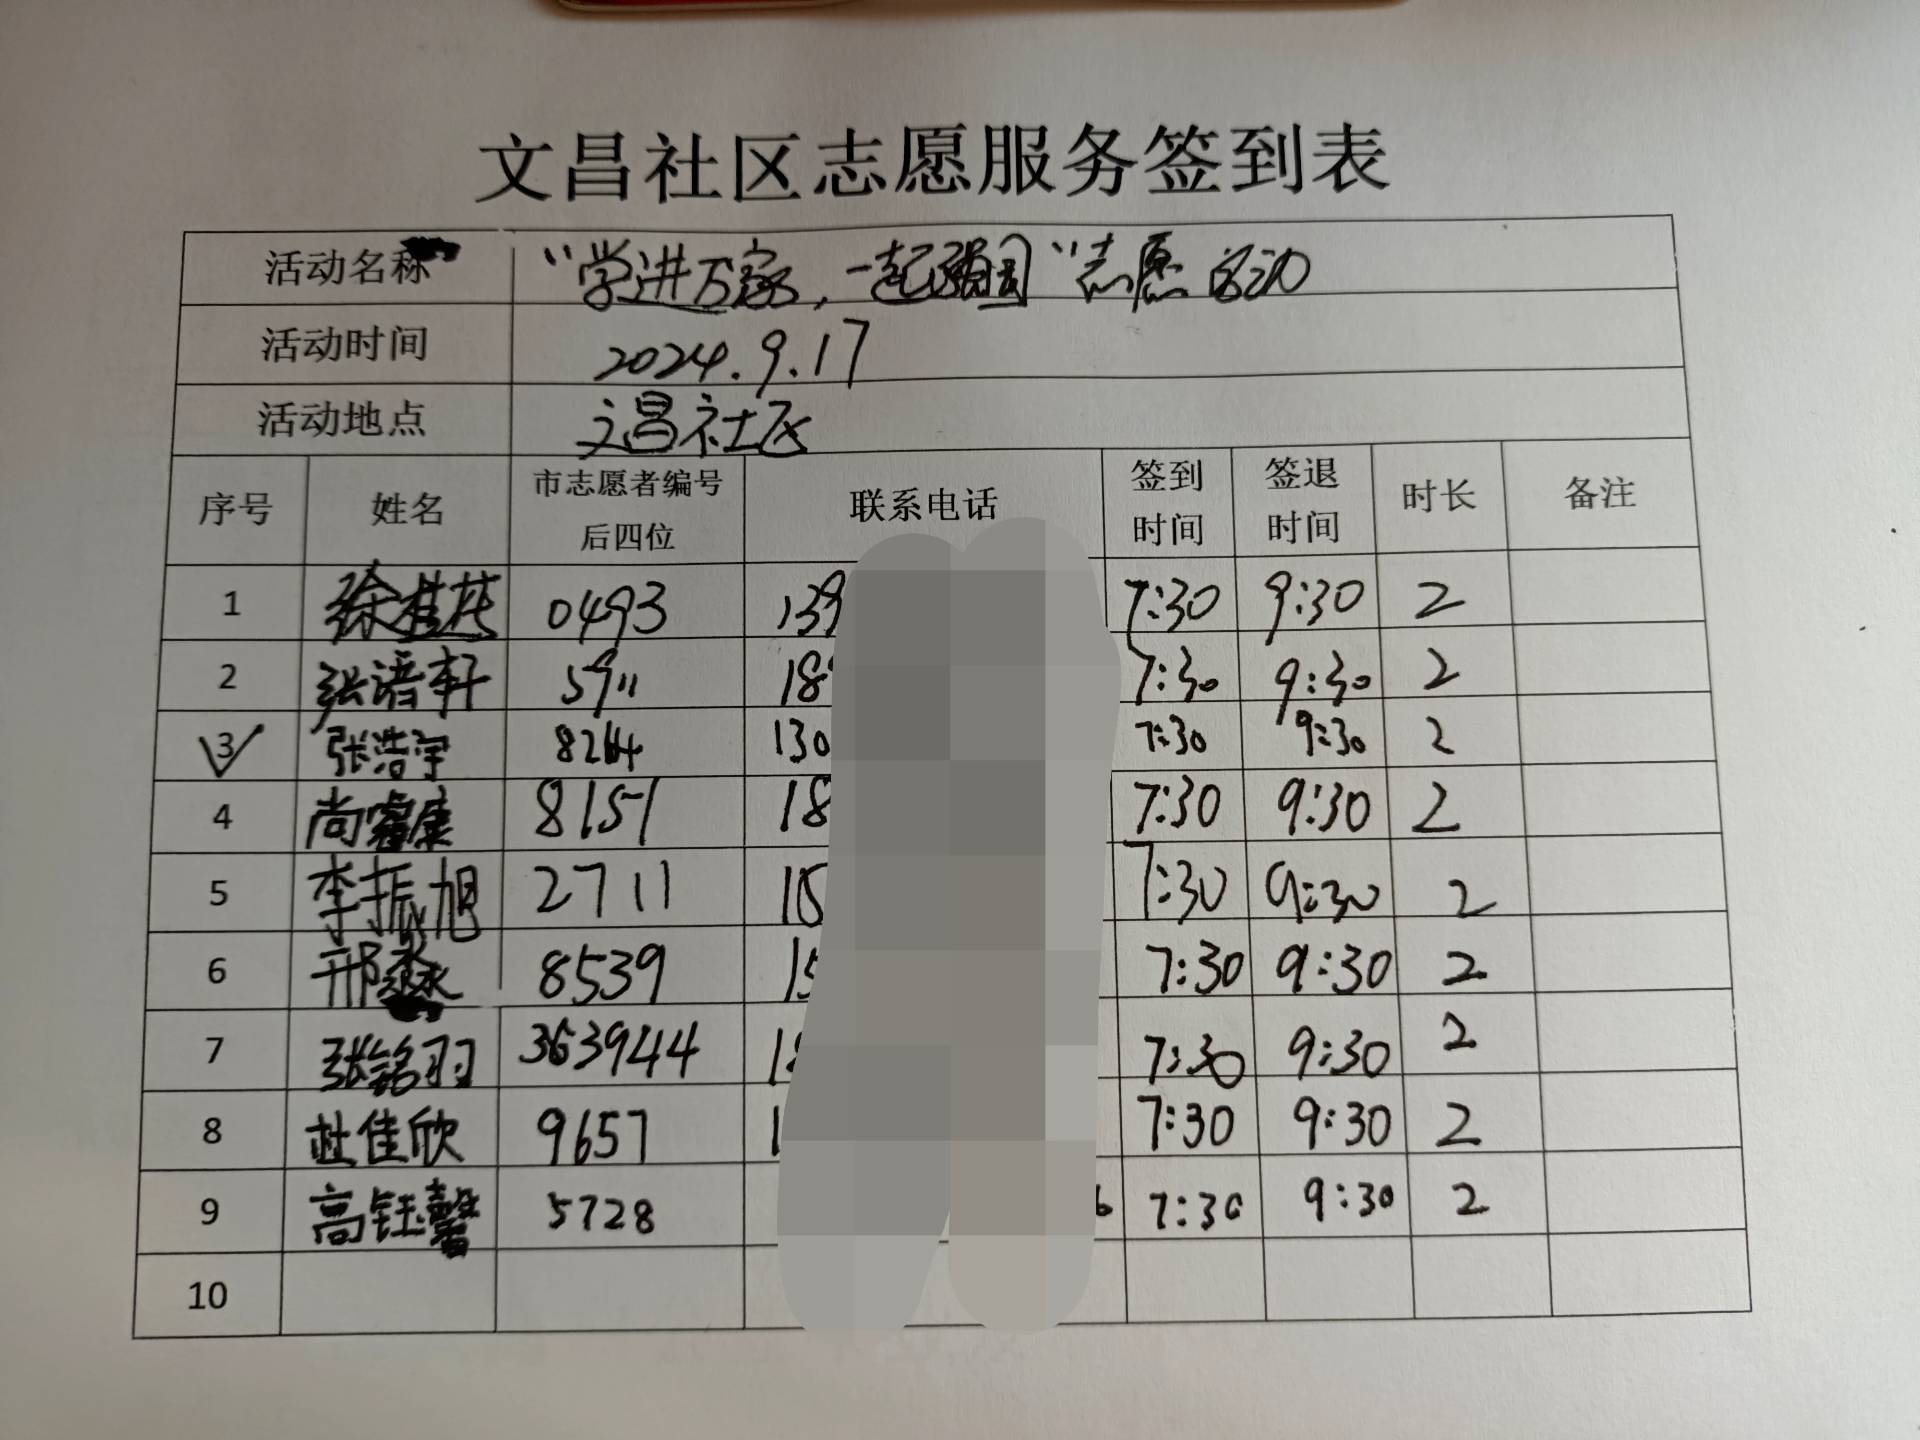 文昌社区志愿服务签到表
活动名称 “学进万家,一起强国”志愿活动
活动时间 2024.9.17
活动地点 文昌社区
序号 姓名 市志愿者编号后四位 联系电话 签到时间 签退时间 时长 备注
1 徐桂芹 0493 139 7:30 9:30 2
2 张语轩 5911 18 7:30 9:30 2
3 张浩宇 8244 130 7:30 9:30 2
4 尚睿康 8151 18 7:30 9:30 2
5 李振旭 2711 15 7:30 9:30 2
6 邢淼 8539 15 7:30 9:30 2
7 张铭羽 363944 1 7:30 9:30 2
8 杜佳欣 9657 1 7:30 9:30 2
9 高钰馨 5728 6 7:30 9:30 2
10